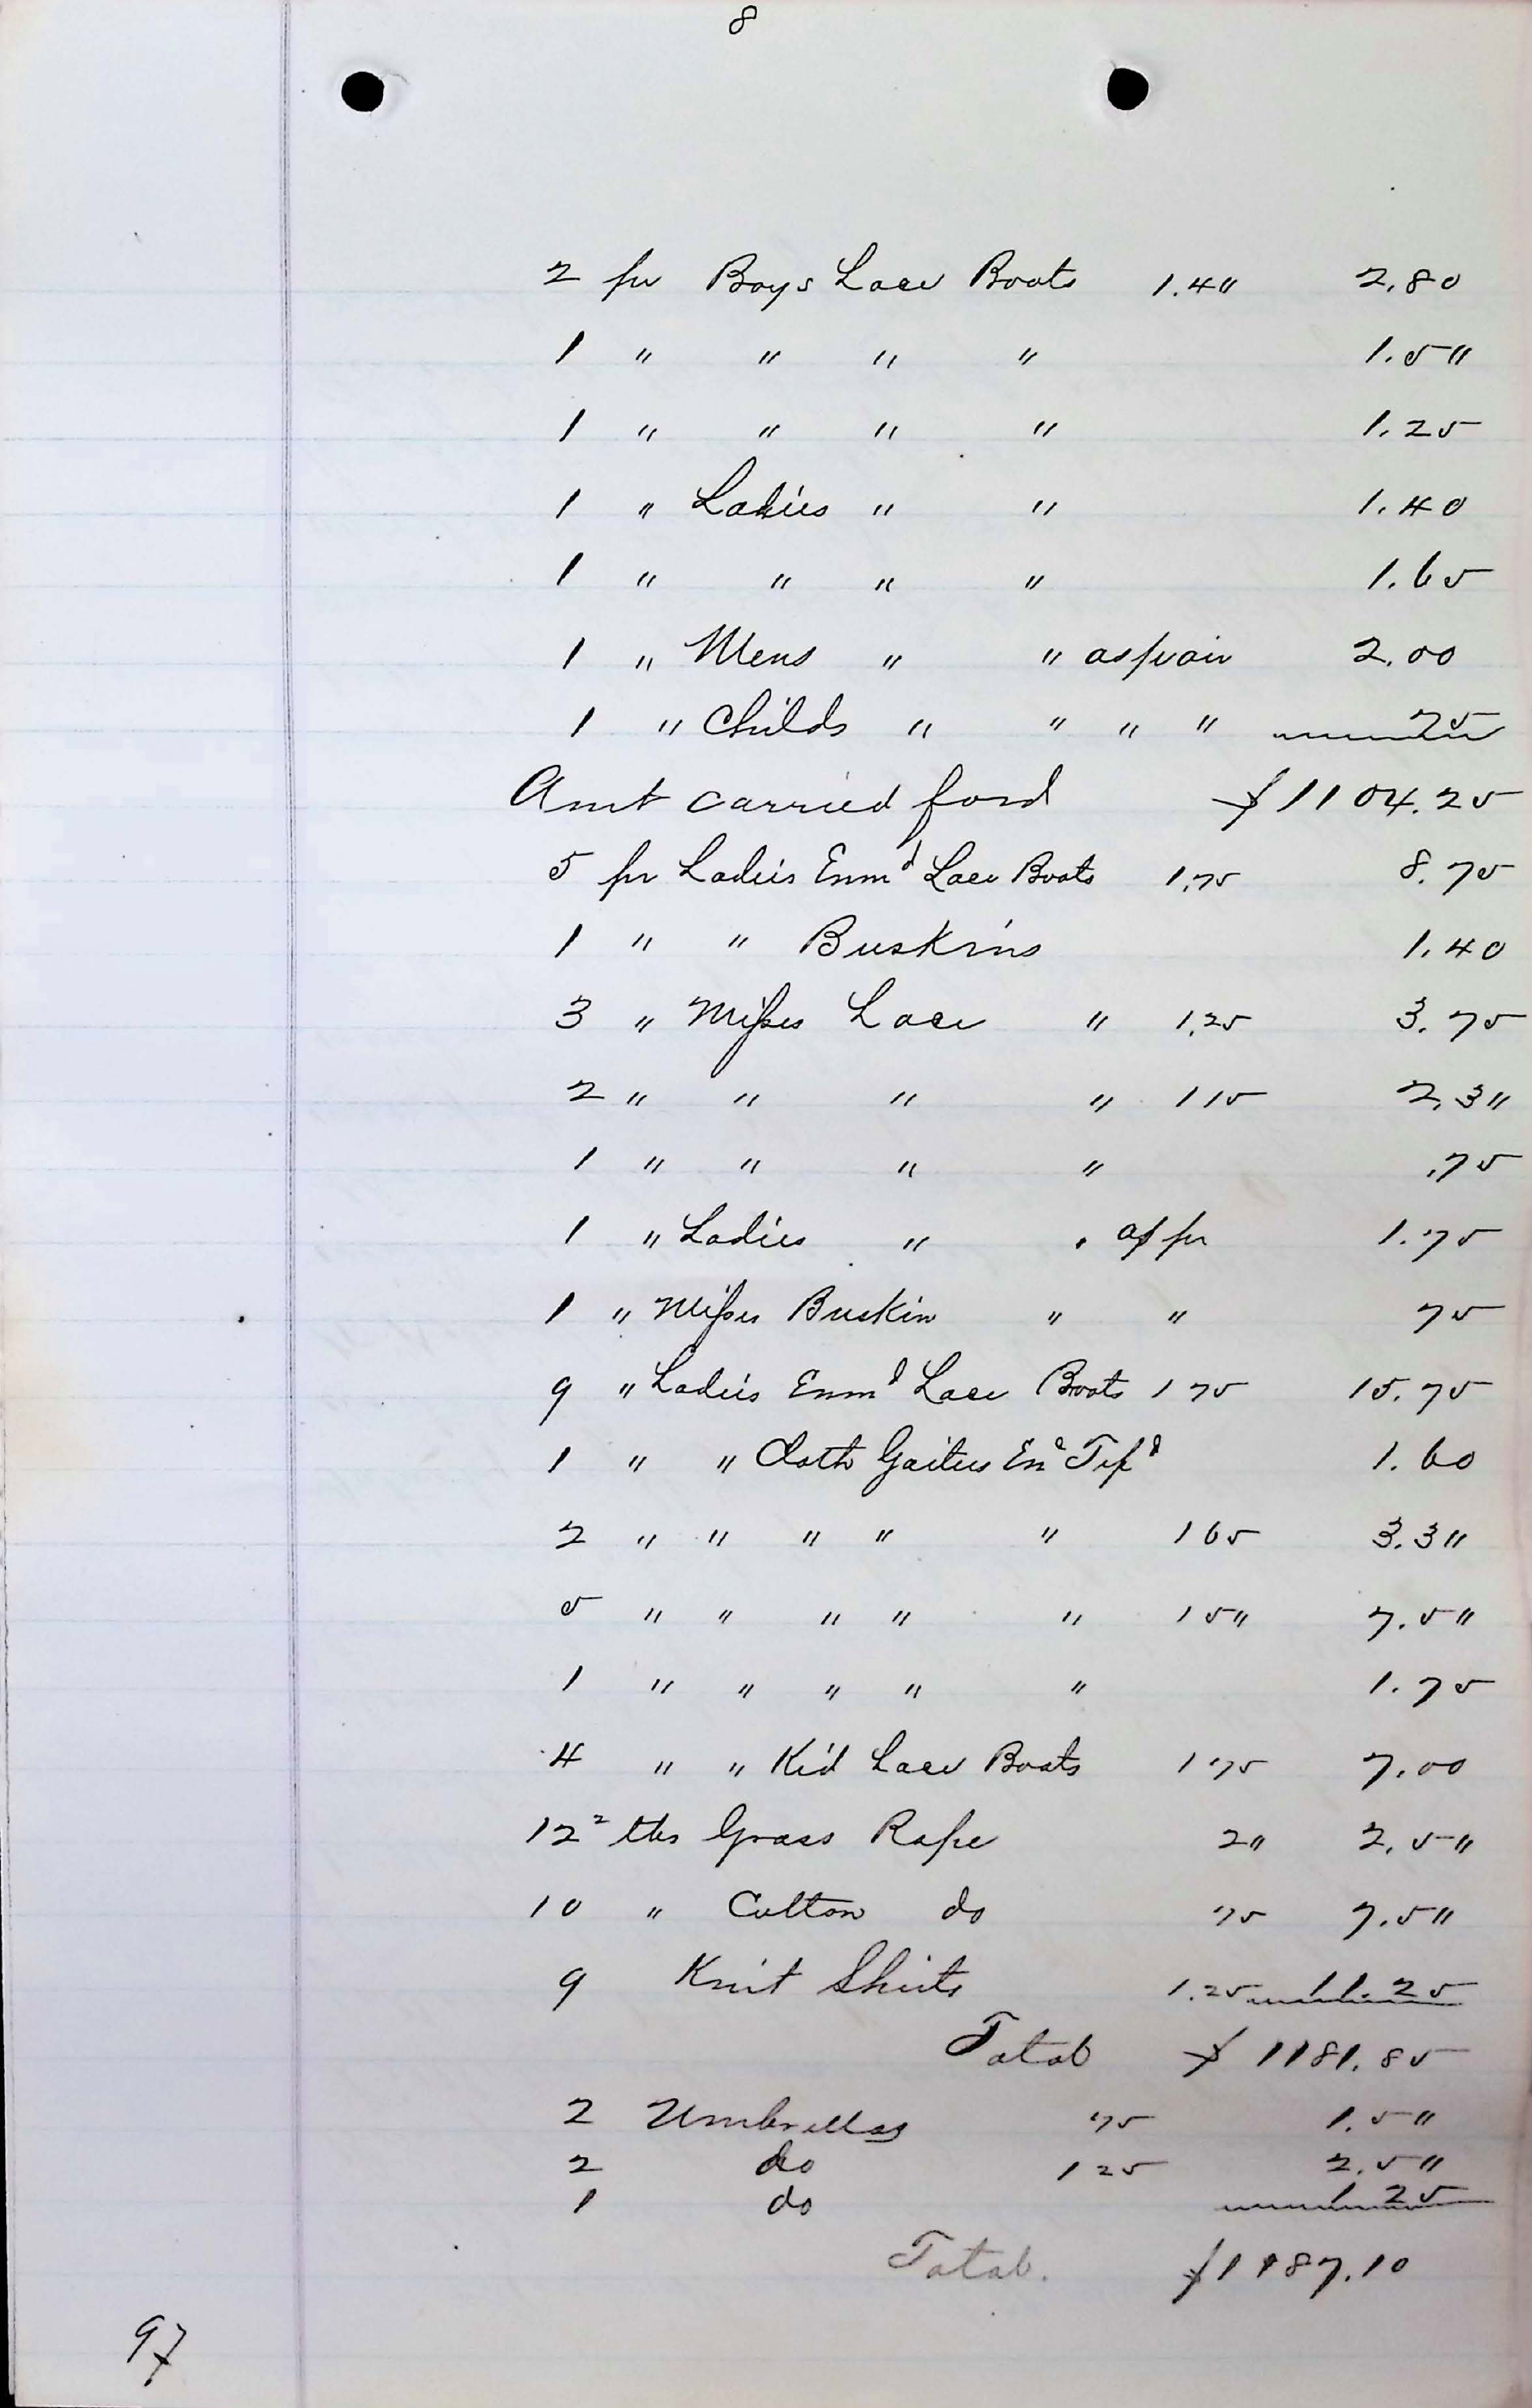 8
2 pr Boys Lace Boots 1.4" 2.80
1 " " " " 1.5"
1 " " " " 1.25
1 " Ladies " " 1.40
1 " " " " 1.65
1 " Mens " " as pair 2.00
1 " Childs " " " " 75
Amt carried ford $1104.25
5 pr Ladies Enmd Lace Boots 1.75 8.75
1 " " Buskins 1.40
3 " Misses Lace " 1.25 3.75
2 " " " " 115 2.3"
1 " " " " .75
1 " Ladies " " as pr 1.75
1 " Misses Buskin " " 75
9 " Ladies Enmd Lace Boots 1 75 15.75
1 " " Cloth Gaiters End Tipd 1.60
2 " " " " " 1 65 3.3"
5 " " " " " 1 5" 7.5"
1 " " " " " 1.75
4 " " Kid Lace Boots 1 75 7.00
12 2 lbs Grass Rope 2" 2.5"
10 " Cotton do 75 7.5"
9 Knit Shirts 1.25 11.25
Total $ 1181.85
2 Umbrellas 75 1.5"
2 do 1 25 2.5"
1 do 1 25
Total. $1187.10
97